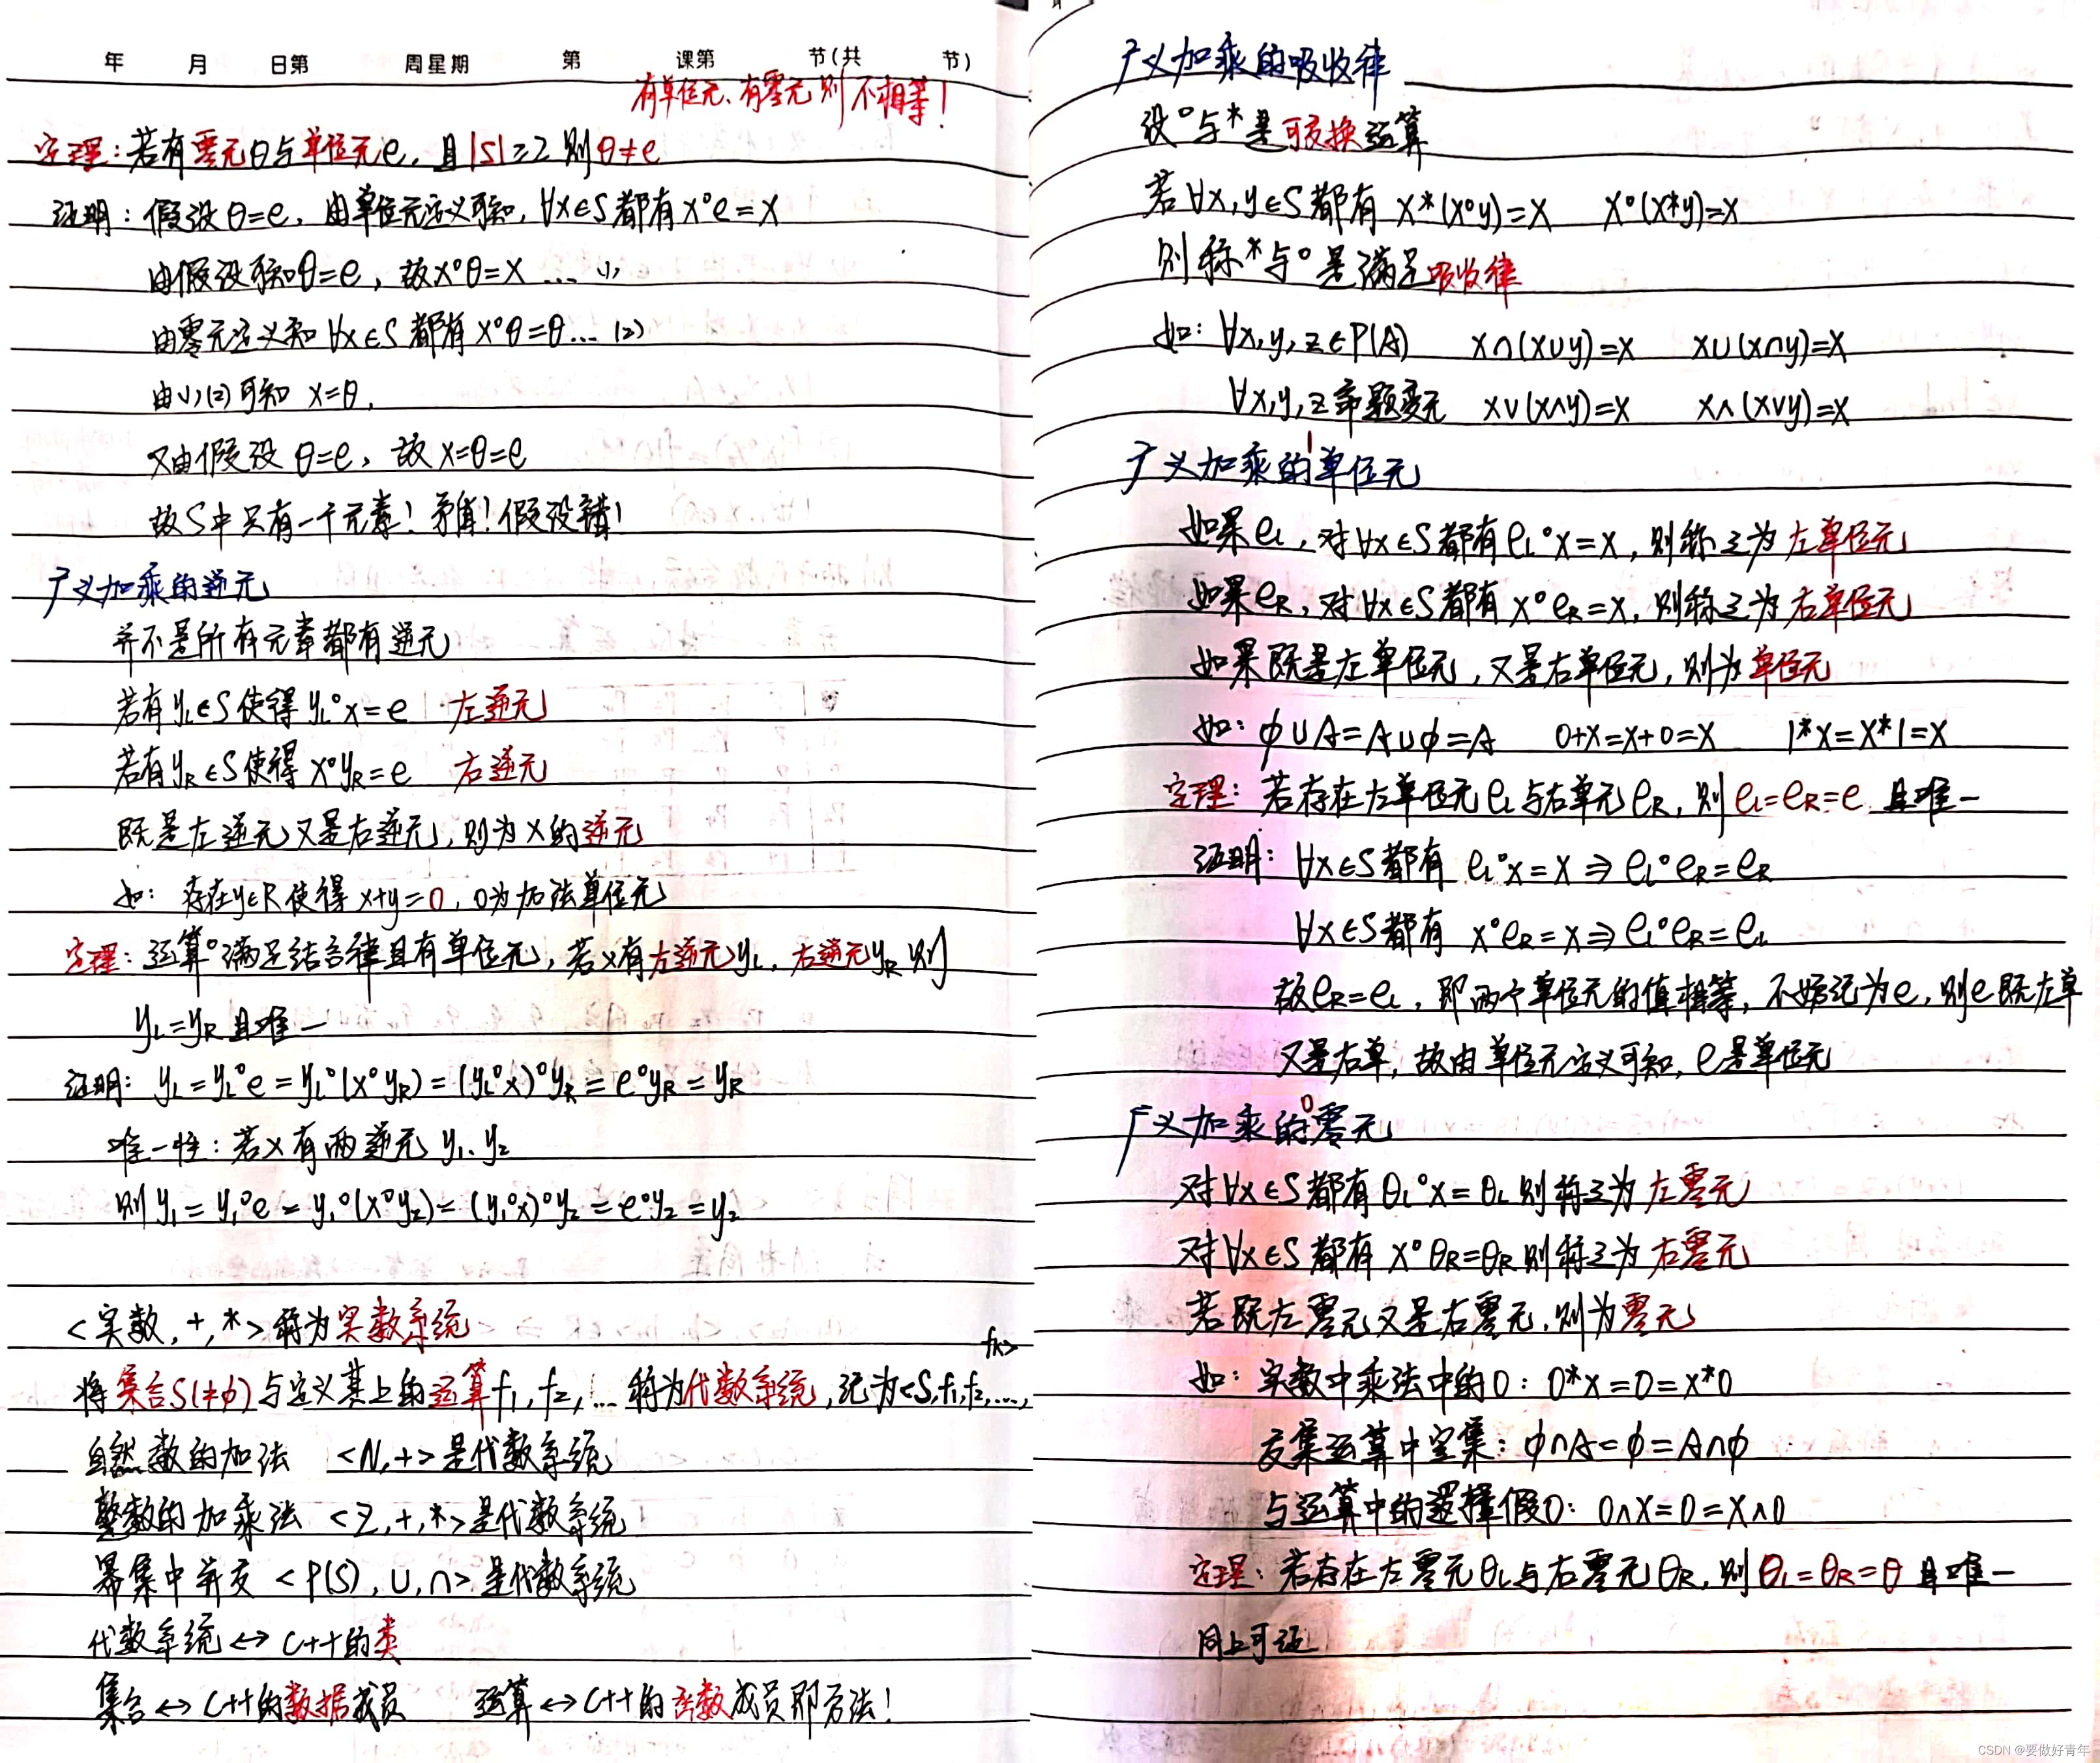 年 月 日第 周星期 第 课第 节(共 节)
有单位元、有零元则不相等!
定理:若有零元θ与单位元e,且|S|≥2则θ≠e
证明:假设θ=e,由单位元定义可知,∀x∈S都有x°e=x
由假设可知θ=e,故x°θ=x … (1)
由零元定义知∀x∈S都有x°θ=θ… (2)
由(1)(2)可知 x=θ,
又由假设 θ=e,故x=θ=e
故S中只有一个元素!矛盾!假设错!
广义加乘的逆元
并不是所有元素都有逆元
若有yL∈S使得yL°x=e 左逆元
若有yR∈S使得x°yR=e 右逆元
既是左逆元又是右逆元,则为x的逆元
如: 存在y∈R使得x+y=0,0为加法单位元
定理:运算°满足结合律且有单位元,若x有左逆元yL,右逆元yR则
yL=yR且唯一
证明: yL=yL°e=yL°(x°yR)=(yL°x)°yR=e°yR=yR
唯一性:若x有两逆元y1、y2
则y1=y1°e=y1°(x°y2)=(y1°x)°y2=e°y2=y2
<实数,+,*>称为实数系统
将集合S(≠φ)与定义其上的运算f1,f2,…称为代数系统,记为<S,f1,f2,…,
fn>
自然数的加法 <N,+>是代数系统
整数的加乘法 <Z,+,*>是代数系统
幂集中并交 <P(S),∪,∩>是代数系统
代数系统↔C++的类
集合↔C++的数据成员 运算↔C++的函数成员即方法!
广义加乘的吸收律
设°与*是可交换运算
若∀x,y∈S都有 x*(x°y)=x x°(x*y)=x
则称*与°是满足吸收律
如:∀x,y,z∈P(A) x∩(x∪y)=x x∪(x∩y)=x
∀x,y,z命题变元 x∨(x∧y)=x x∧(x∨y)=x
1
广义加乘的单位元
如果eL,对∀x∈S都有eL°x=x,则称之为左单位元
如果eR,对∀x∈S都有x°eR=x,则称之为右单位元
如果既是左单位元,又是右单位元,则为单位元
如:φ∪A=A∪φ=A 0+x=x+0=x 1*x=x*1=x
定理:若存在左单位元eL与右单元eR,则eL=eR=e 且唯一
证明:∀x∈S都有 eL°x=x⇒eL°eR=eR
∀x∈S都有 x°eR=x⇒eL°eR=eL
故eR=eL,即两个单位元的值相等,不妨记为e,则e既左单
又是右单,故由单位元定义可知,e是单位元
0
广义加乘的零元
对∀x∈S都有θL°x=θL则称之为左零元
对∀x∈S都有x°θR=θR则称之为右零元
若既左零元又是右零元,则为零元
如:实数中乘法中的0:0*x=0=x*0
交集运算中空集:φ∩A=φ=A∩φ
与运算中的选择假0:0∧x=0=x∧0
定理:若存在左零元θL与右零元θR,则θL=θR=θ且唯一
同上可证
CSDN @要做好青年